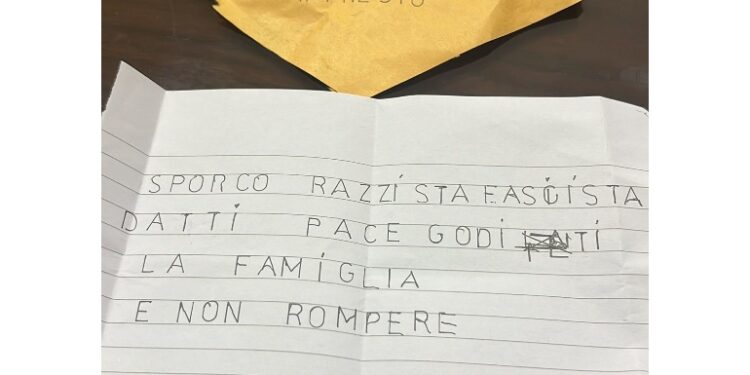 SPORCO RAZZiSTA FASCiSTA
DATTi PACE GODi TI
LA FAMiGLIA
E NON ROMPERE